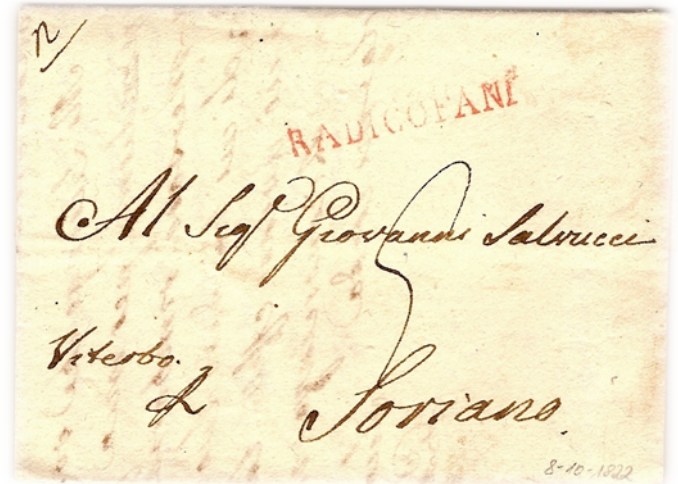 RADICOFANI
Al Sigr Giovanni Salvucci
Viterbo.
Soriano.
8-10-1822